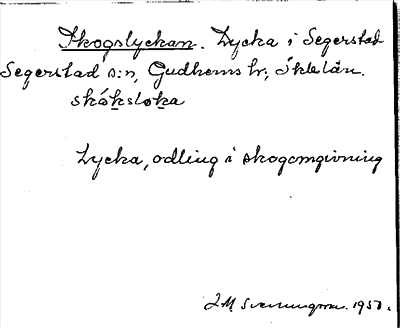 Skogslyckan. Lycka i Segerstad
Segerstad s:n, Gudhems hr, Skbl län.
skóksloka
Lycka, odling i skogomgivning
J M Svenningson. 1950.